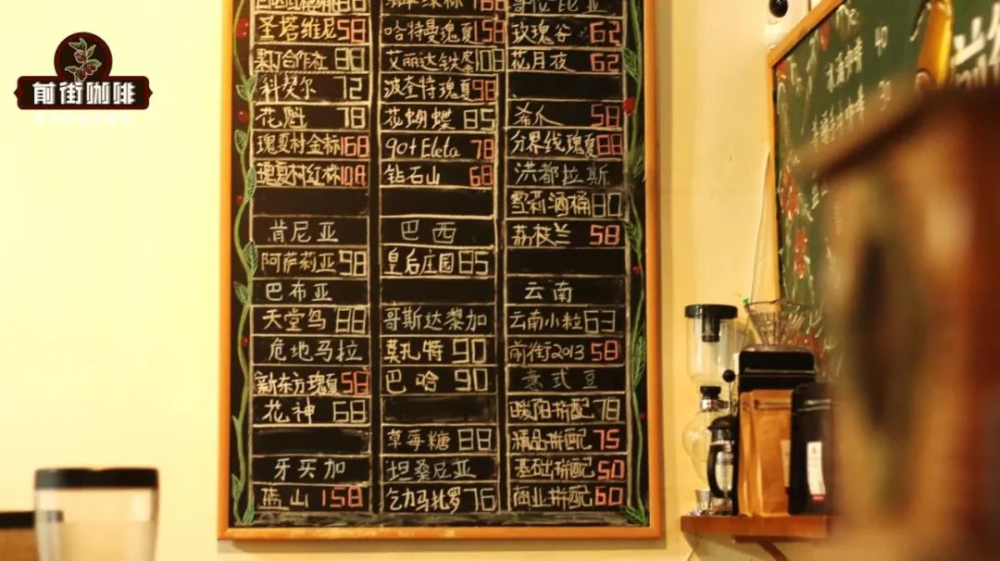 前街咖啡
圣塔维尼 58
果丁合作社 88
科契尔 72
花魁 78
瑰夏村金标 168
瑰夏村红标 108
肯尼亚
阿萨莉亚 98
巴布亚
天堂鸟 88
危地马拉
新东方瑰夏 58
花神 68
牙买加
蓝山 158
哈特曼瑰夏 158
艾丽达铁桶 108
波奎特瑰夏 98
花蝴蝶 85
90+Eleta 78
钻石山 68
巴西
皇后庄园 85
哥斯达黎加
莫扎特 90
巴哈 90
草莓糖 88
坦桑尼亚
乞力马扎罗 76
玫瑰谷 62
花月夜 62
希爪 58
分界线瑰夏 88
洪都拉斯
雪莉酒桶 80
荔枝兰 58
云南
云南小粒 63
前街2013 58
意式豆
暖阳拼配 78
精品拼配 75
基础拼配 50
商业拼配 60